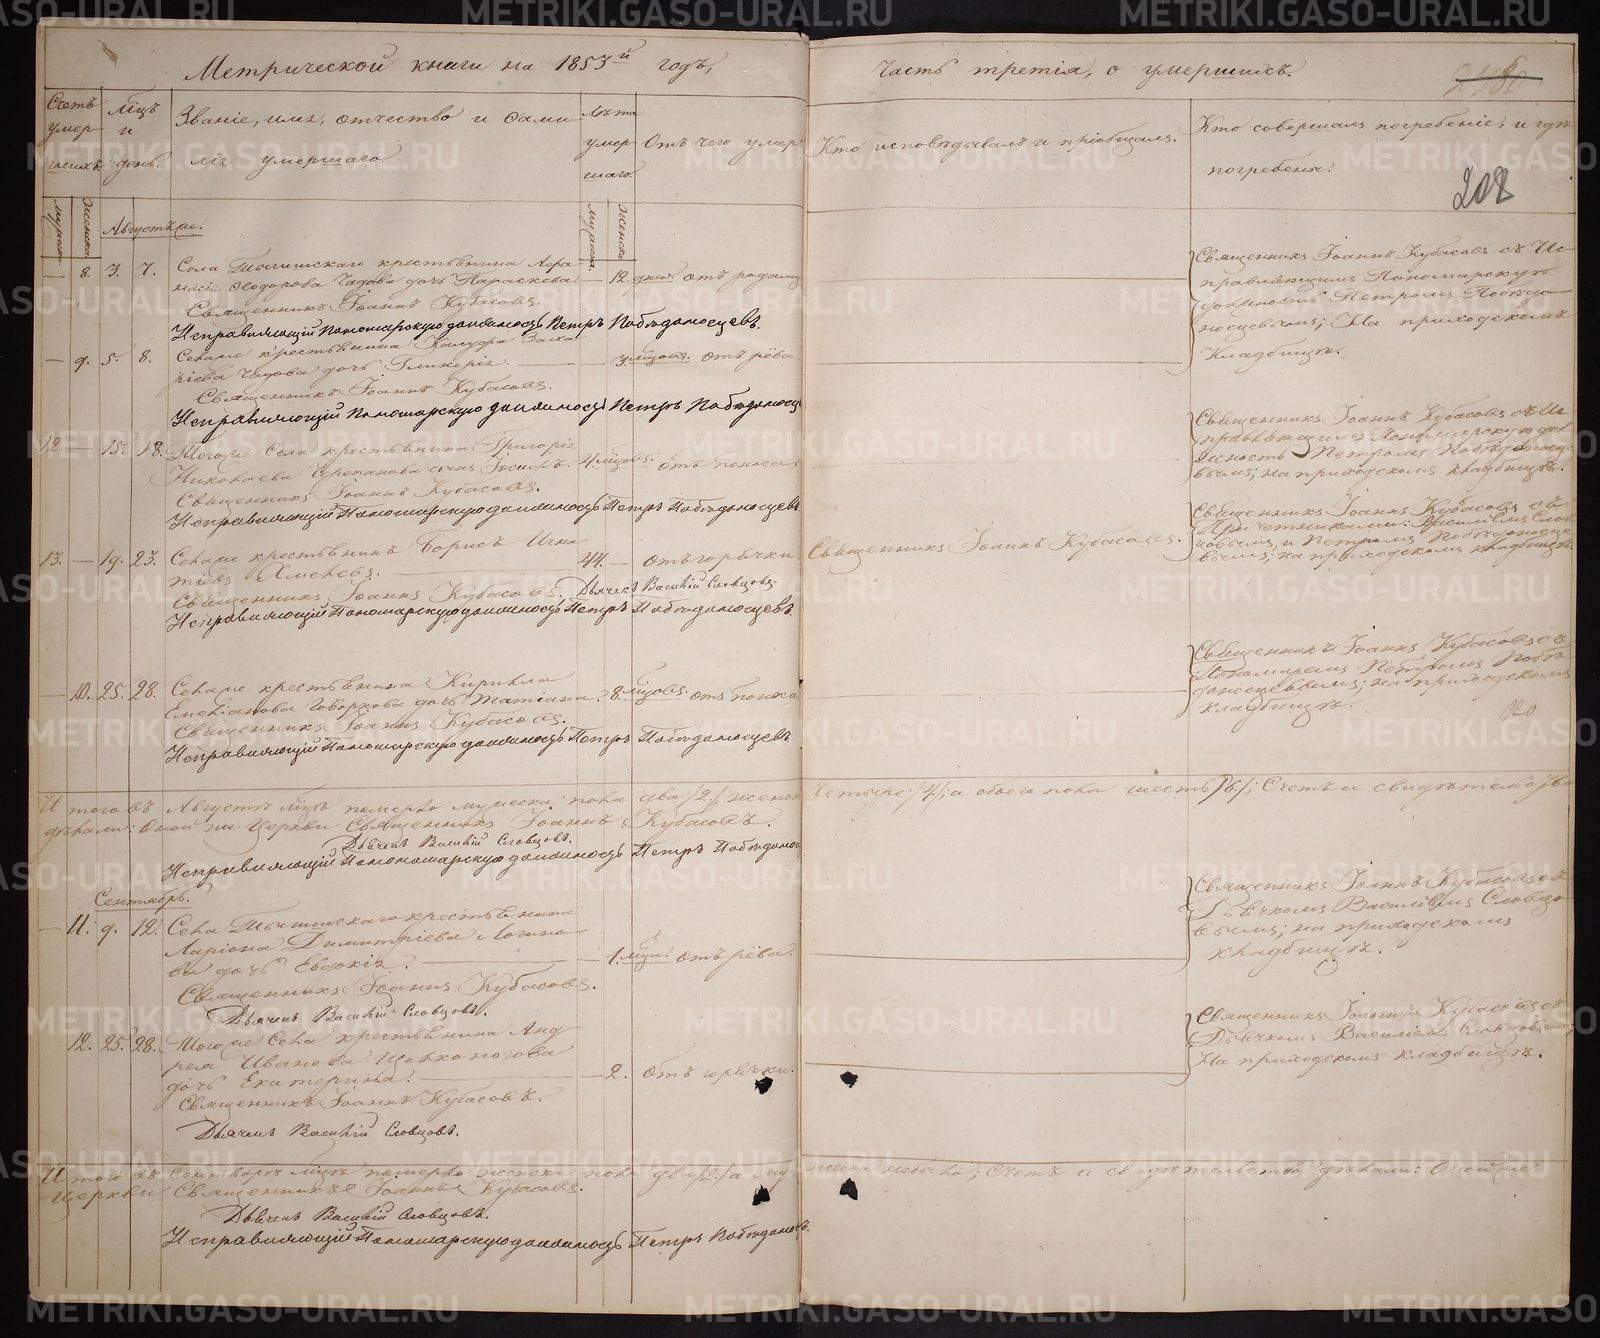 Метрической книги на 1853й годъ,
Часть третія, о умершихъ.
208
Счетъ умер- шихъ.
Мѣцъ и день.
Званіе, имя, отчество и фами-
лія умершаго.
Лѣта умер- шаго.
Отъ чего умеръ
Кто исповѣдывалъ и пріобщалъ.
Кто совершалъ погребеніе, и гдѣ
погребены.
мужска.
женска.
Августъ
мужска.
женска.
— 8. 3. 7. Села крестьянина Афа-
насія Ѳеодорова Чадова дочь Параскева — 12. дней. отъ родимц
Священникъ Іоаннъ Кубасовъ.
Исправляющій Пономарскую должность Петръ Побѣдоносцевъ.
Священникъ Іоаннъ Кубасовъ съ Ис-
правляющимъ Пономарскую
должность Петромъ Побѣдо-
носцевымъ; На приходскомъ
Кладбищѣ.
— 9. 5. 8. Села же крестьянина Заха-
ріева Чадова дочь Гликерія. — 3. мѣцовъ. отъ рёва.
Священникъ Іоаннъ Кубасовъ.
Исправляющій Пономарскую должность Петръ Побѣдоносц
12. — 15. 18. Того же Села крестьянина Григорія
Николаева Черепанова сынъ Іосифъ. 4. мѣцовъ. отъ поноса
Священникъ Іоаннъ Кубасовъ.
Исправляющій Пономарскую должность Петръ Побѣдоносцевъ
Священникъ Іоаннъ Кубасовъ съ Ис-
правляющимъ Пономарскую дол-
жность Петромъ Побѣдоносце-
вымъ; на приходскомъ кладбищѣ.
13. — 19. 23. Села же крестьянинъ Борисъ Игна-
тіевъ 44. — отъ горячки
Священникъ Іоаннъ Кубасовъ.
Священникъ Іоаннъ Кубасовъ. Дьячекъ Василій Словцовъ
Исправляющій Пономарскую должность Петръ Побѣдоносцевъ.
Священникъ Іоаннъ Кубасовъ съ
Причетниками: Василіемъ Слов-
цовымъ и Петромъ Побѣдоносце-
вымъ; на приходскомъ кладбищѣ.
— 10. 25. 28. Села же крестьянина Кирилла
Емеліанова Говоркова дочь Татіана. 8. мѣцовъ. отъ поноса
Священникъ Іоаннъ Кубасовъ.
Исправляющій Пономарскую должность Петръ Побѣдоносцевъ
Священникъ Іоаннъ Кубасовъ съ
Пономаремъ Петромъ Побѣ-
доносцевымъ; на приходскомъ
кладбищѣ.
Итого въ Августѣ мѣцѣ померло мужеска пола два /2./ женска Четыре /4./; а обоего пола шесть /6./; Счетъ и свидѣтельство
дѣлали: Оной же Церкви Священникъ Іоаннъ Кубасовъ.
Дьячекъ Василій Словцовъ.
Исправляющій Пономарскую должность Петръ Побѣдонос
Сентябрь.
— 11. 9. 12. Села крестьянина
Ларіона Димитріева Логино-
ва дочь Евдокія. — 1. мѣц. отъ рёва.
Священникъ Іоаннъ Кубасовъ.
Дьячекъ Василій Словцовъ.
Священникъ Іоаннъ Кубасовъ съ
Дьячкомъ Василіемъ Словцо-
вымъ; на приходскомъ
кладбищѣ.
12. 25. 28. Того же Села крестьянина Анд-
рея Иванова Щелконогова
дочь Екатерина. — 2. отъ горячки.
Священникъ Іоаннъ Кубасовъ.
Дьячекъ Василій Словцовъ.
Священникъ Іоаннъ Кубасовъ съ
Дьячкомъ Василіемъ Словцовымъ
На приходскомъ кладбищѣ.
Итого въ Сентябрѣ мѣцѣ померло женска пола два /2./ а му- жеска небыло; Счетъ и свидѣтельство дѣлали: Оной же
Церкви Священникъ Іоаннъ Кубасовъ.
Дьячекъ Василій Словцовъ.
Исправляющій Пономарскую должность Петръ Побѣдонос
METRIKI.GASO-URAL.RU